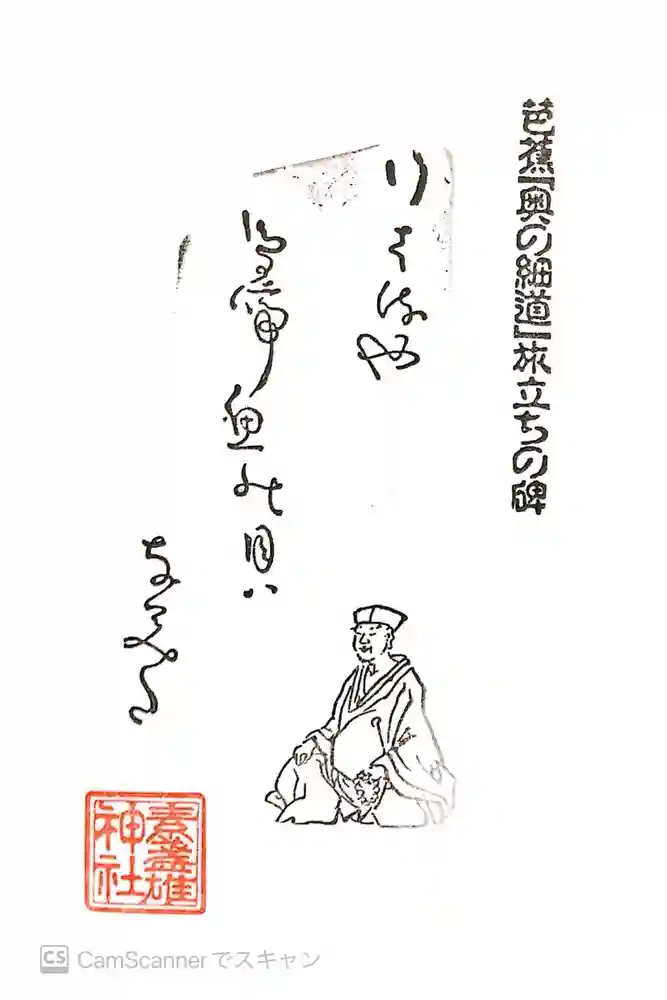 芭蕉「奥の細道」旅立ちの碑
行はるや
鳥啼魚の目ハ
なみた
素盞雄
神社
CS CamScannerでスキャン